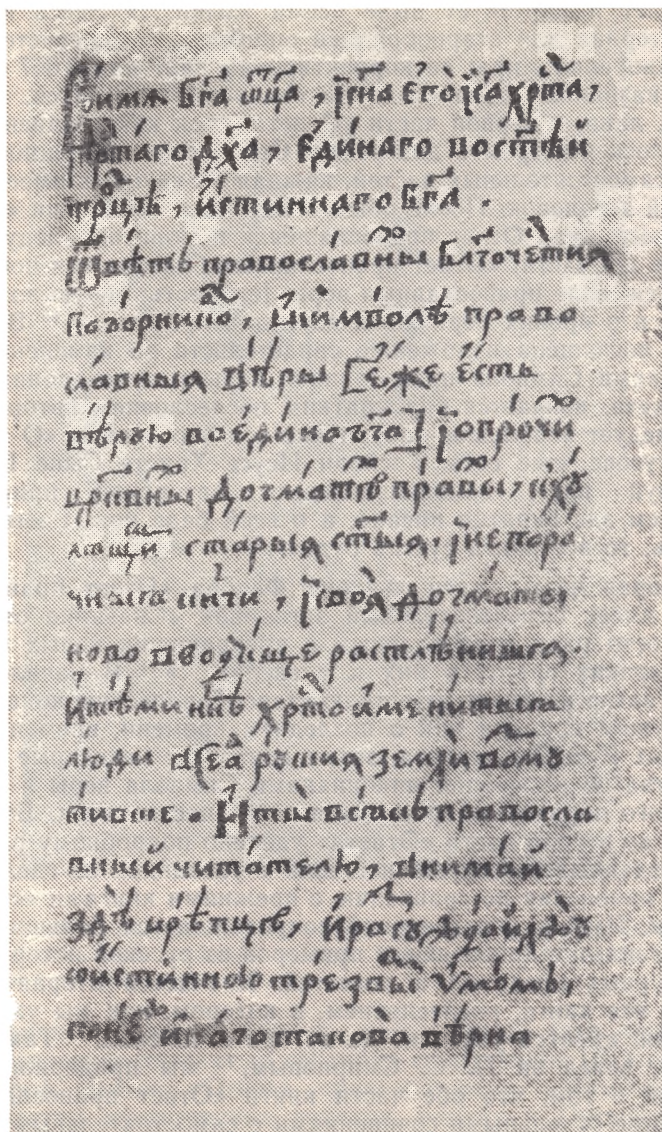 Во имѧ бг҃а ѿц҃а, і҆ сн҃а є҆гѡ̀ і҆с҃а хрⷭ҇та̀,
и҆ ст҃а́го дх҃а, є҆ди́наго во ст҃ѣ́й
трⷪ҇цѣ, и҆́стиннаго бг҃а.
Ѿвѣ́тъ правосла́вны бл҃гоче́стиꙗ
побо́рникѡ, ѡ҆ сѵмво́лѣ право
сла́вныꙗ вѣ́ры [є҆́же є҆́сть
вѣ́рꙋю во є҆ди́наго бг҃а] і҆ ѡ҆ про́чи
цр҃ко́вны до́гматѡ пра́вы,
старыꙗ ст҃ы́ꙗ, і҆ непоро́
чныꙗ, і҆ своѧ̀ до́гматы
ново растлѣ́нныꙗ.
И҆ тѣ́ми нн҃ѣ хрⷭ҇тоимени́тыꙗ
лю́ди всеѧ̀ рꙋ́сиꙗ землѝ возмꙋ
ти́вше. И҆ ты̀ всѧ́къ правосла
вный чита́телю, внима́й
здѣ̀ крѣ́пцѣ, и҆ разсꙋжда́й
со и҆́стинною тре́звы ᲂу҆мо́мъ,
поне́ и҆ на́го такова̀ вѣ́рна